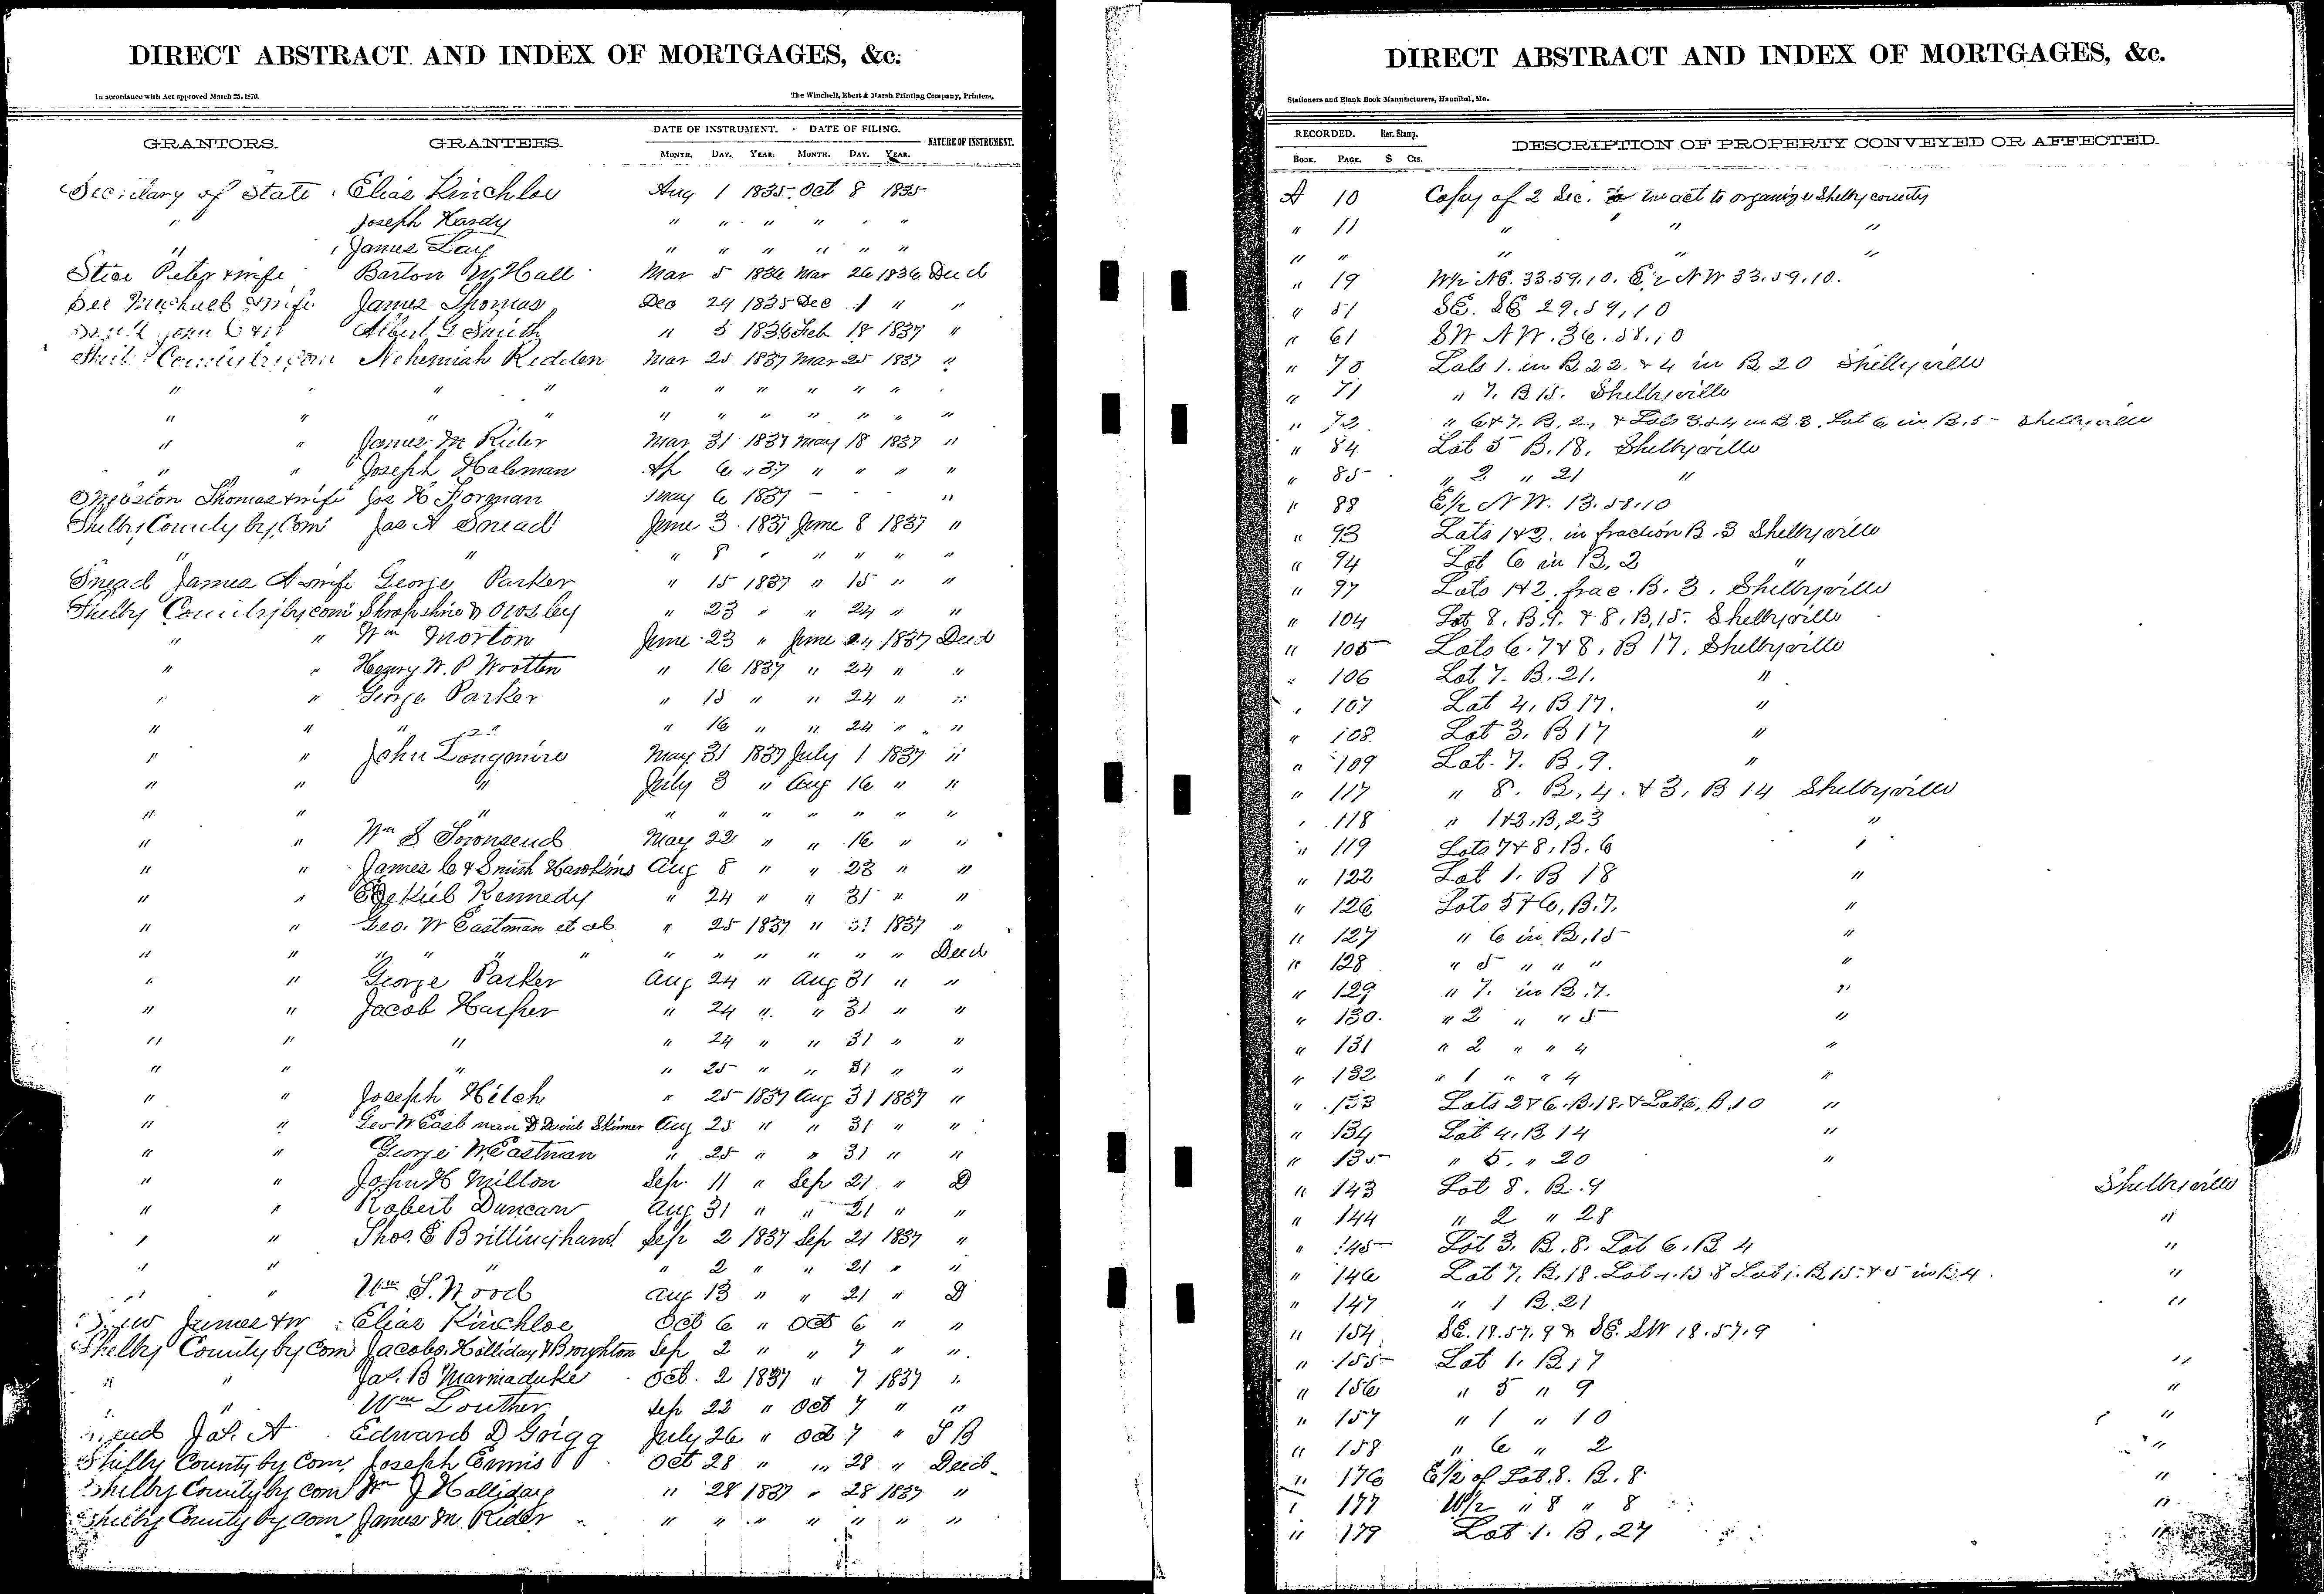 DIRECT ABSTRACT AND INDEX OF MORTGAGES, &c.
In accordance with Act approved March 25, 1870.
The Winchell, Ebert & Marsh Printing Company, Printers,
GRANTORS. GRANTEES. DATE OF INSTRUMENT. DATE OF FILING. NATURE OF INSTRUMENT.
MONTH. DAY. YEAR. MONTH. DAY. YEAR.
Secretary of State Elias Kinchloe Aug 1 1835 Oct 8 1835
" Joseph Hardy " " " " " "
" James Lay " " " " " "
Stice Peter & wife Barton W. Hall Mar 5 1836 Mar 26 1836 Deed
See Michael & wife James Thomas Dec 24 1835 Dec 1 " "
Albert G Smith " 5 1836 Feb 18 1837 "
Nehemiah Redden Mar 25 1837 Mar 25 1837 "
" " " " " " " " "
" " " " " " " " " " "
" " James M Rider Mar 31 1837 May 18 1837 "
" " Joseph Holeman Ap 6 " 37 " " " "
Thomas & wife Jos H Forman May 6 1837 - - - "
Shelby County by Com Jas A Snead June 3 1837 June 8 1837 "
" " " 8 " " " " "
Snead James A & wife George Parker " 15 1837 " 15 " "
Shelby County by com Shropshire & Owsley " 23 " " 24 " "
" " Wm Morton June 23 " June 1837 Deed
" " Henry W. P Wootten " 16 1837 " 24 " "
" " George Parker " 15 " " 24 " "
" " " " " 16 " " 24 " "
" " John Longmire May 31 1837 July 1 1837 "
" " " July 3 " Aug 16 " "
" " " " " " " " " "
" " Wm S Townsend May 22 " " 16 " "
" " James C & Smith Hawkins Aug 8 " " 28 " "
" " Ezekiel Kennedy " 24 " " 31 " "
" " Geo. W Eastman et al " 25 1837 " 31 1837 "
" " " " " " " " " " " Deed
" " George Parker Aug 24 " Aug 31 " "
" " Jacob Harper " 24 " " 31 " "
" " " " 24 " " 31 " "
" " " " 25 " " 31 " "
" " Joseph Hitch " 25 1837 Aug 31 1837 "
" " Geo W Eastman & David Skinner Aug 25 " " 31 " "
" " George W. Eastman " 25 " " 31 " "
" " John H Millon Sep 11 " Sep 21 " D
" " Robert Duncan Aug 31 " " 21 " "
" " Thos. E Brillinghand Sep 2 1837 Sep 21 1837 "
" " " " 2 " " 21 " "
" " Wm S. Wood Aug 13 " " 21 " D
James & w Elias Kinchloe Oct 6 " Oct 6 " "
Shelby County by Com Jacobs, Holliday & Broughton Sep 2 " " 7 " "
" " Jas. B Marmaduke Oct. 2 1837 " 7 1837 "
" " Wm Louther Sep 22 " Oct 7 " "
Jas. A Edward D Grigg July 26 " Oct 7 " S B
Shelby County by Com, Joseph Ennis Oct 28 " " 28 " Deed
Shelby County by Com Wm J Holliday " 28 1837 " 28 1837 "
Shelby County by Com James M Rider " " " " " " "
DIRECT ABSTRACT AND INDEX OF MORTGAGES, &c.
Stationers and Blank Book Manufacturers, Hannibal, Mo.
RECORDED. Rev. Stamp. DESCRIPTION OF PROPERTY CONVEYED OR AFFECTED.
BOOK. PAGE. $ Cts.
A 10 Copy of 2 Sec. an act to organize Shelby county
" 11 " " "
" " " " "
" 19 W½ NE. 33.59.10. E½ NW 33.59.10.
" 51 SE. SE 29.59.10
" 61 SW NW. 36.58.10
" 70 Lots 1. in B 22. & 4 in B 20 Shelbyville
" 71 " 7. B 15. Shelbyville
" 72 " 6 & 7. B. 2, & Lots 3 & 4 in B 3. Lot 6 in B. 5 - Shelbyville
" 84 Lot 5 B. 18. Shelbyville
" 85 " 2 " 21 "
" 88 E½ NW. 13.58.10
" 93 Lots 1 & 2. in fraction B. 3 Shelbyville
" 94 Lot 6 in B. 2 "
" 97 Lots 1 & 2 frac. B. 3. Shelbyville
" 104 Lot 8. B. 9. & 8. B. 15. Shelbyville
" 105 Lots 6. 7 & 8. B 17. Shelbyville
" 106 Lot 7. B. 21. "
" 107 Lot 4, B 17. "
" 108 Lot 3. B 17 "
" 109 Lot. 7. B. 9. "
" 117 " 8. B. 4. & 3. B 14 Shelbyville
" 118 " 1 & 3. B, 23 "
" 119 Lots 7 & 8. B. 6 "
" 122 Lot 1. B 18 "
" 126 Lots 5 & 6, B. 7. "
" 127 " 6 in B. 15 "
" 128 " 5 " " " "
" 129 " 7. in B. 7. "
" 130. " 2 " " 5 "
" 131 " 2 " " 4 "
" 132 " 1 " " 4 "
" 133 Lots 2 & 6. B. 18. & Lot 6, B. 10 "
" 134 Lot 4. B 14 "
" 135 " 5. " 20 "
" 143 Lot 8. B. 9 Shelbyville
" 144 " 2 " 28 "
" 145 Lot 3. B. 8. Lot 6. B 4 "
" 146 Lot 7. B. 18. Lot 4. B 8 Lot 1. B 15. & 5 in B 4. "
" 147 " 1 B. 21 "
" 154 SE. 18.57.9 & SE. SW 18.57.9
" 155 Lot 1. B. 17 "
" 156 " 5 " 9 "
" 157 " 1 " 10 "
" 158 " 6 " 2 "
" 176 E½ of Lot. 8. B. 8 "
" 177 W½ " 8 " 8 "
" 179 Lot 1. B. 27 "